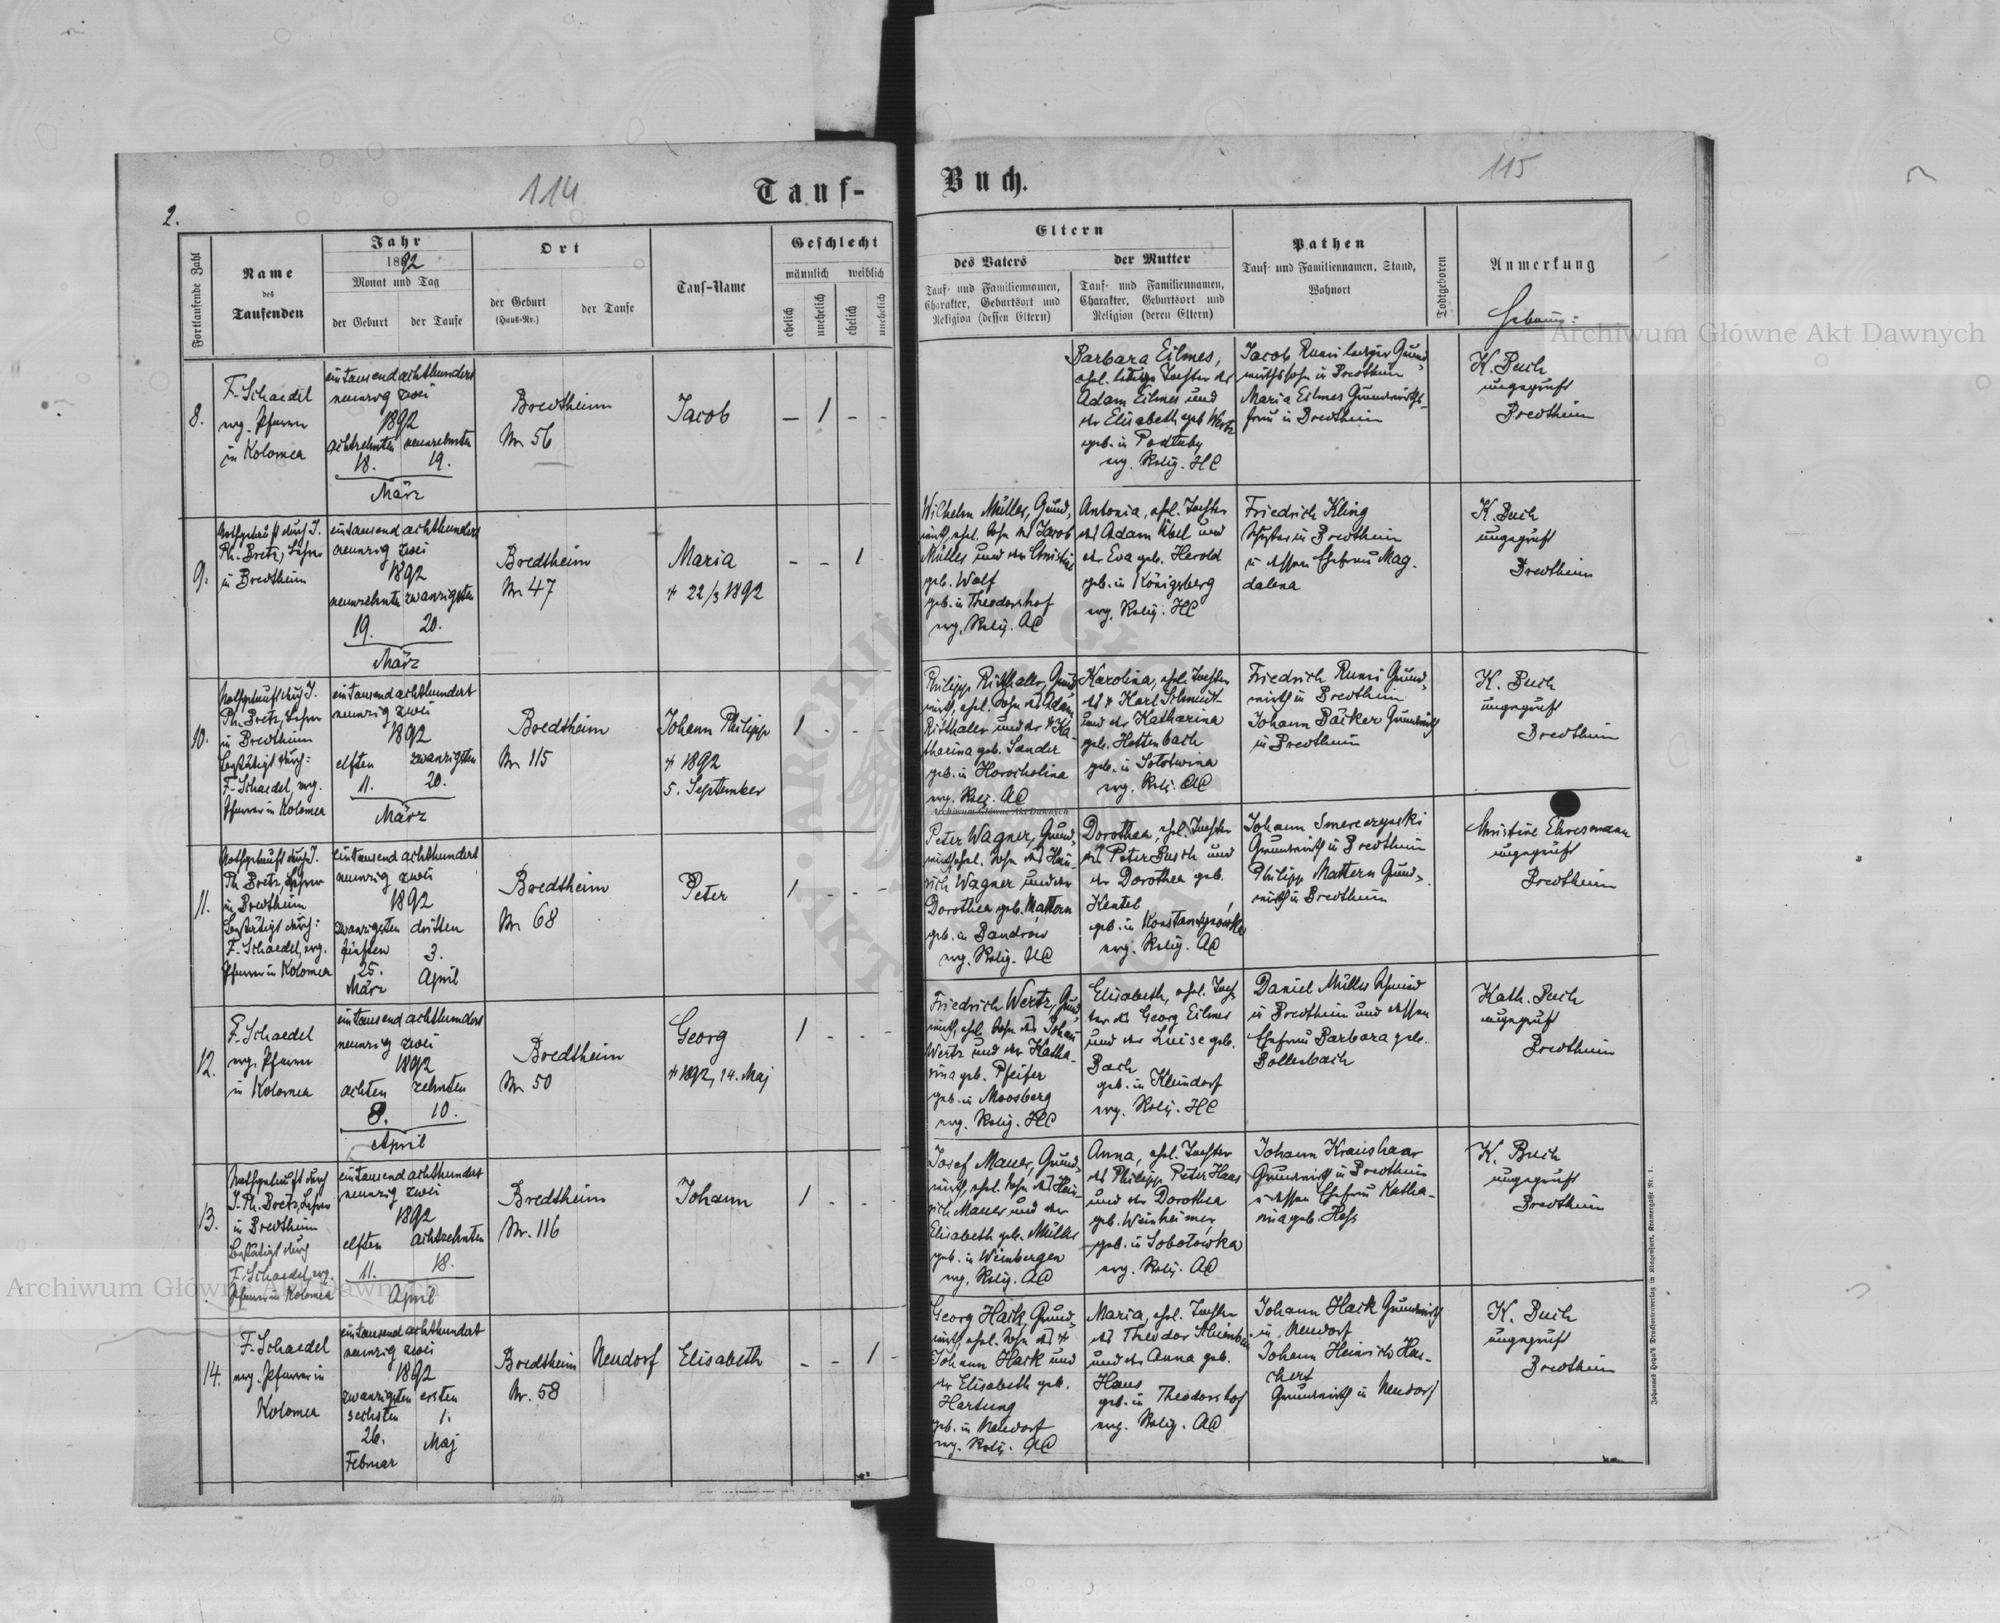 114
2.
Tauf-
Fortlaufende Zahl
Name
des
Taufenden
Jahr
1892
Monat und Tag
der Geburt
der Taufe
Ort
der Geburt
(Haus-Nr.)
der Taufe
Tauf-Name
Geschlecht
männlich
weiblich
ehelich
unehelich
ehelich
unehelich
8.
F. Schaedel
evg. Pfarrer
in Kolomea
eintausendachthundert
neunzig zwei
1892
achtzehnten neunzehnten
18. 19.
März
Bredtheim
Nr. 56
Jacob
— 1 – –
9.
Nothgetauft durch J.
Ph. Bretz, Lehrer
in Bredtheim
eintausend achthundert
neunzig zwei
1892
neunzehnten zwanzigsten
19. 20.
März
Bredtheim
Nr. 47
Maria
+ 22/3 1892
– – 1 –
10.
Nothgetauft durch J.
Ph. Bretz, Lehrer
in Bredtheim
bestätigt durch:
F. Schaedel, evg.
Pfarrer in Kolomea
eintausendachthundert
neunzig zwei
1892
elften zwanzigsten
11. 20.
März
Bredtheim
Nr. 115
Johann Philipp
+ 1892
5. September
1 - - -
11.
Nothgetauft durch J.
Ph. Bretz, Lehrer
in Bredtheim
bestätigt durch:
F. Schaedel, evg.
Pfarrer in Kolomea
eintausend achthundert
neunzig zwei
1892
zwanzigsten dritten
fünften 3.
25.
März April
Bredtheim
Nr. 68
Peter
1 - - -
12.
F. Schaedel
evg. Pfarrer
in Kolomea
eintausendachthundert
neunzig zwei
1892
achten zehnten
8. 10.
April
Bredtheim
Nr. 50
Georg
+ 1892, 14. Maj
1 - -
13.
Nothgetauft durch
J. Ph. Bretz, Lehrer
in Bredtheim
bestätigt durch
F. Schaedel, evg.
Pfarrer in Kolomea
eintausendachthundert
neunzig zwei
1892
elften achtzehnten
11. 18.
April
Bredtheim
Nr. 116
Johann
1 - -
14.
F. Schaedel
evg. Pfarrer in
Kolomea
eintausend achthundert
neunzig zwei
1892
zwanzigsten ersten
sechsten 1.
26. Maj
Februar
Bredtheim
Nr. 58
Neudorf
Elisabeth
- - 1 -
115
Buch.
Eltern
des Vaters
Tauf- und Familiennamen,
Charakter, Geburtsort und
Religion (dessen Eltern)
der Mutter
Tauf- und Familiennamen,
Charakter, Geburtsort und
Religion (deren Eltern)
Pathen
Tauf- und Familiennamen, Stand,
Wohnort
Todtgeboren
Anmerkung
Barbara Eilmes,
ehel. ledige Tochter des
Adam Eilmes und
der Elisabeth geb. Wertz
geb. in
evg. Relig. HC
Jacob Rumi lediger Grund-
wirthssohn in Bredtheim
Maria Eilmes Grundwirths-
frau in Bredtheim
K. Buch
ungeprüft
Bredtheim
Wilhelm Müller, Grund-
wirth, ehel. Sohn des Jacob
Müller und der Christine
geb. Wolf
geb. in Theodorshof
evg. Relig. AC
Antonia, ehel. Tochter
des Adam Übel und
der Eva geb. Herold
geb. in Königsberg
evg. Relig. HC
Friedrich Kling
in Bredtheim
u. dessen Ehefrau Mag-
dalena
K. Buch
ungeprüft
Bredtheim
Philipp Ritthaler, Grund-
wirth, ehel. Sohn des Adam
Ritthaler und der + Ka-
tharina geb. Sander
geb. in Horocholina
evg. Relig. AC
Karolina, ehel. Tochter
des + Karl Schmidt
und der Katharina
geb. Hottenbach
geb. in Solotwina
evg. Relig. AC
Friedrich Rumi Grund-
wirth in Bredtheim
Johann Bäcker Grundwirth
in Bredtheim
K. Buch
ungeprüft
Bredtheim
Peter Wagner, Grund-
wirth, ehel. Sohn des Hein-
rich Wagner und der
Dorothea geb. Mattern
geb. in Bandrow
evg. Relig. AC
Dorothea, ehel. Tochter
des Peter Busch und
der Dorothea geb.
Kentel
geb. in Konstantynowka
evg. Relig. AC
Johann Smerczynski
Grundwirth in Bredtheim
Philipp Mattern Grund-
wirth in Bredtheim
Christine Ehresmann
ungeprüft
Bredtheim
Friedrich Wertz, Grund-
wirth, ehel. Sohn des Johann
Wertz und der Katha-
rina geb. Pfeifer
geb. in Moosberg
evg. Relig. HC
Elisabeth, ehel. Toch-
ter des Georg Eilmes
und der Luise geb.
Bach
geb. in Kleindorf
evg. Relig. HC
Daniel Müller
in Bredtheim und dessen
Ehefrau Barbara geb.
Bollenbach
Kath. Buch
ungeprüft
Bredtheim
Josef Mauer, Grund-
wirth, ehel. Sohn des Hein-
rich Mauer und der
Elisabeth geb. Müller
geb. in Weinbergen
evg. Relig. AC
Anna, ehel. Tochter
des Philipp Peter Haas
und der Dorothea
geb. Weinheimer
geb. in Sobotowka
evg. Relig. AC
Johann Kraushaar
Grundwirth in Bredtheim
u. dessen Ehefrau Katha-
rina geb. Heß
K. Buch
ungeprüft
Bredtheim
Georg Hack, Grund-
wirth, ehel. Sohn des +
Johann Hack und
der Elisabeth geb.
Hartung
geb. in Neudorf
evg. Relig. AC
Maria, ehel. Tochter
des Theodor
und der Anna geb.
Haus
geb. in Theodorshof
evg. Relig. AC
Johann Hack Grundwirth
in Neudorf
Johann Heinrich Har-
chert
Grundwirth in Neudorf
K. Buch
ungeprüft
Bredtheim
Johannes Heyn's Drucksortenverlag in Klagenfurt, Kramergasse Nr. 1.
Archiwum Główne Akt Dawnych
Archiwum Główne Akt Dawnych
Archiwum Główne Akt Dawnych